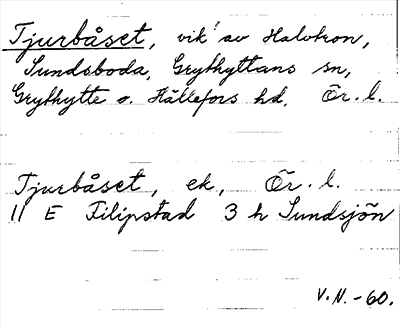 Tjurbåset, vik av Halvtron,
Sundsboda, Grythyttans sn,
Grythytte o. Hällefors hd, Ör. l.
Tjurbåset, ek, Ör. l.
11 E Filipstad 3 h Sundsjön
V.N.-60.